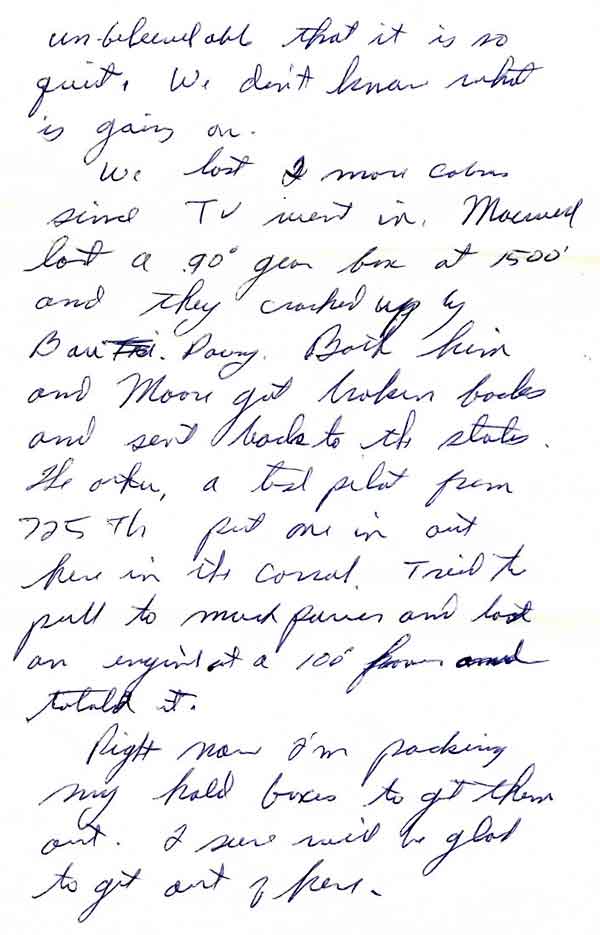 un-beleeveable that it is so
quiet. We don't know what
is going on.
We lost 2 more cobras
since TV went in. Maxwell
lost a 90° gear box at 1500'
and they cracked up by
Both him
and Moore got broken backs
and sent back to the states.
The other, a test pilot from
725 Th put one in out
here in the corral. Tried to
pull to much power and lost
an engine at a 100'
totald it.
Right now I'm packing
my hold boxes to get them
out. I sure will be glad
to get out of here.